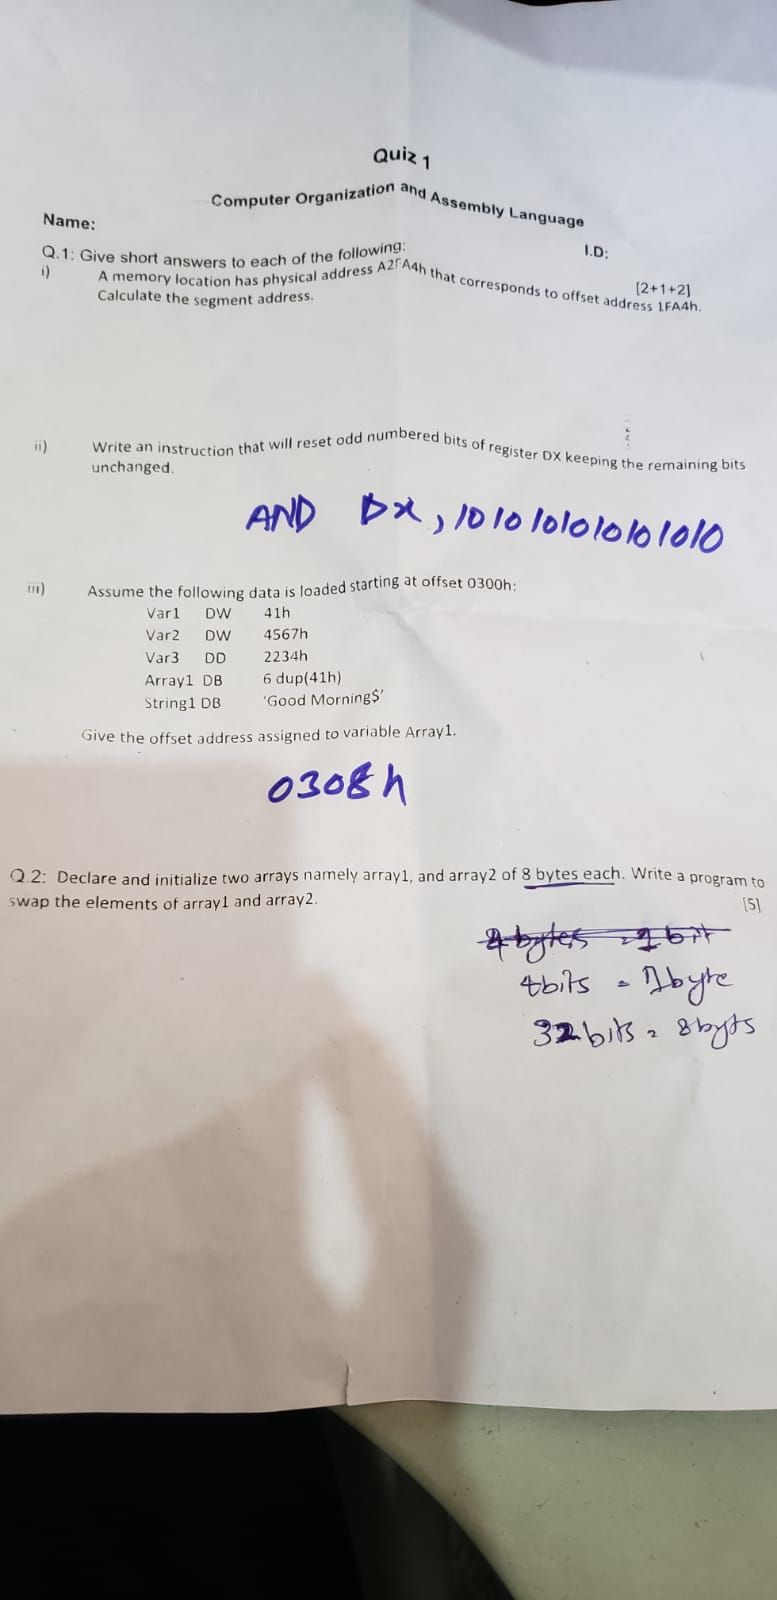 Quiz 1
Computer Organization and Assembly Language
Name:
I.D:
Q.1: Give short answers to each of the following:
[2+1+2]
i) A memory location has physical address A2FA4h that corresponds to offset address 1FA4h.
Calculate the segment address.
ii) Write an instruction that will reset odd numbered bits of register DX keeping the remaining bits
unchanged.
AND Dx, 1010101010101010
iii) Assume the following data is loaded starting at offset 0300h:
Var1 DW 41h
Var2 DW 4567h
Var3 DD 2234h
Array1 DB 6 dup(41h)
String1 DB 'Good Morning$'
Give the offset address assigned to variable Array1.
0308h
Q.2: Declare and initialize two arrays namely array1, and array2 of 8 bytes each. Write a program to
swap the elements of array1 and array2.
[5]
4 bytes = 1 bit
4bits = 1byte
32bits = 8byts